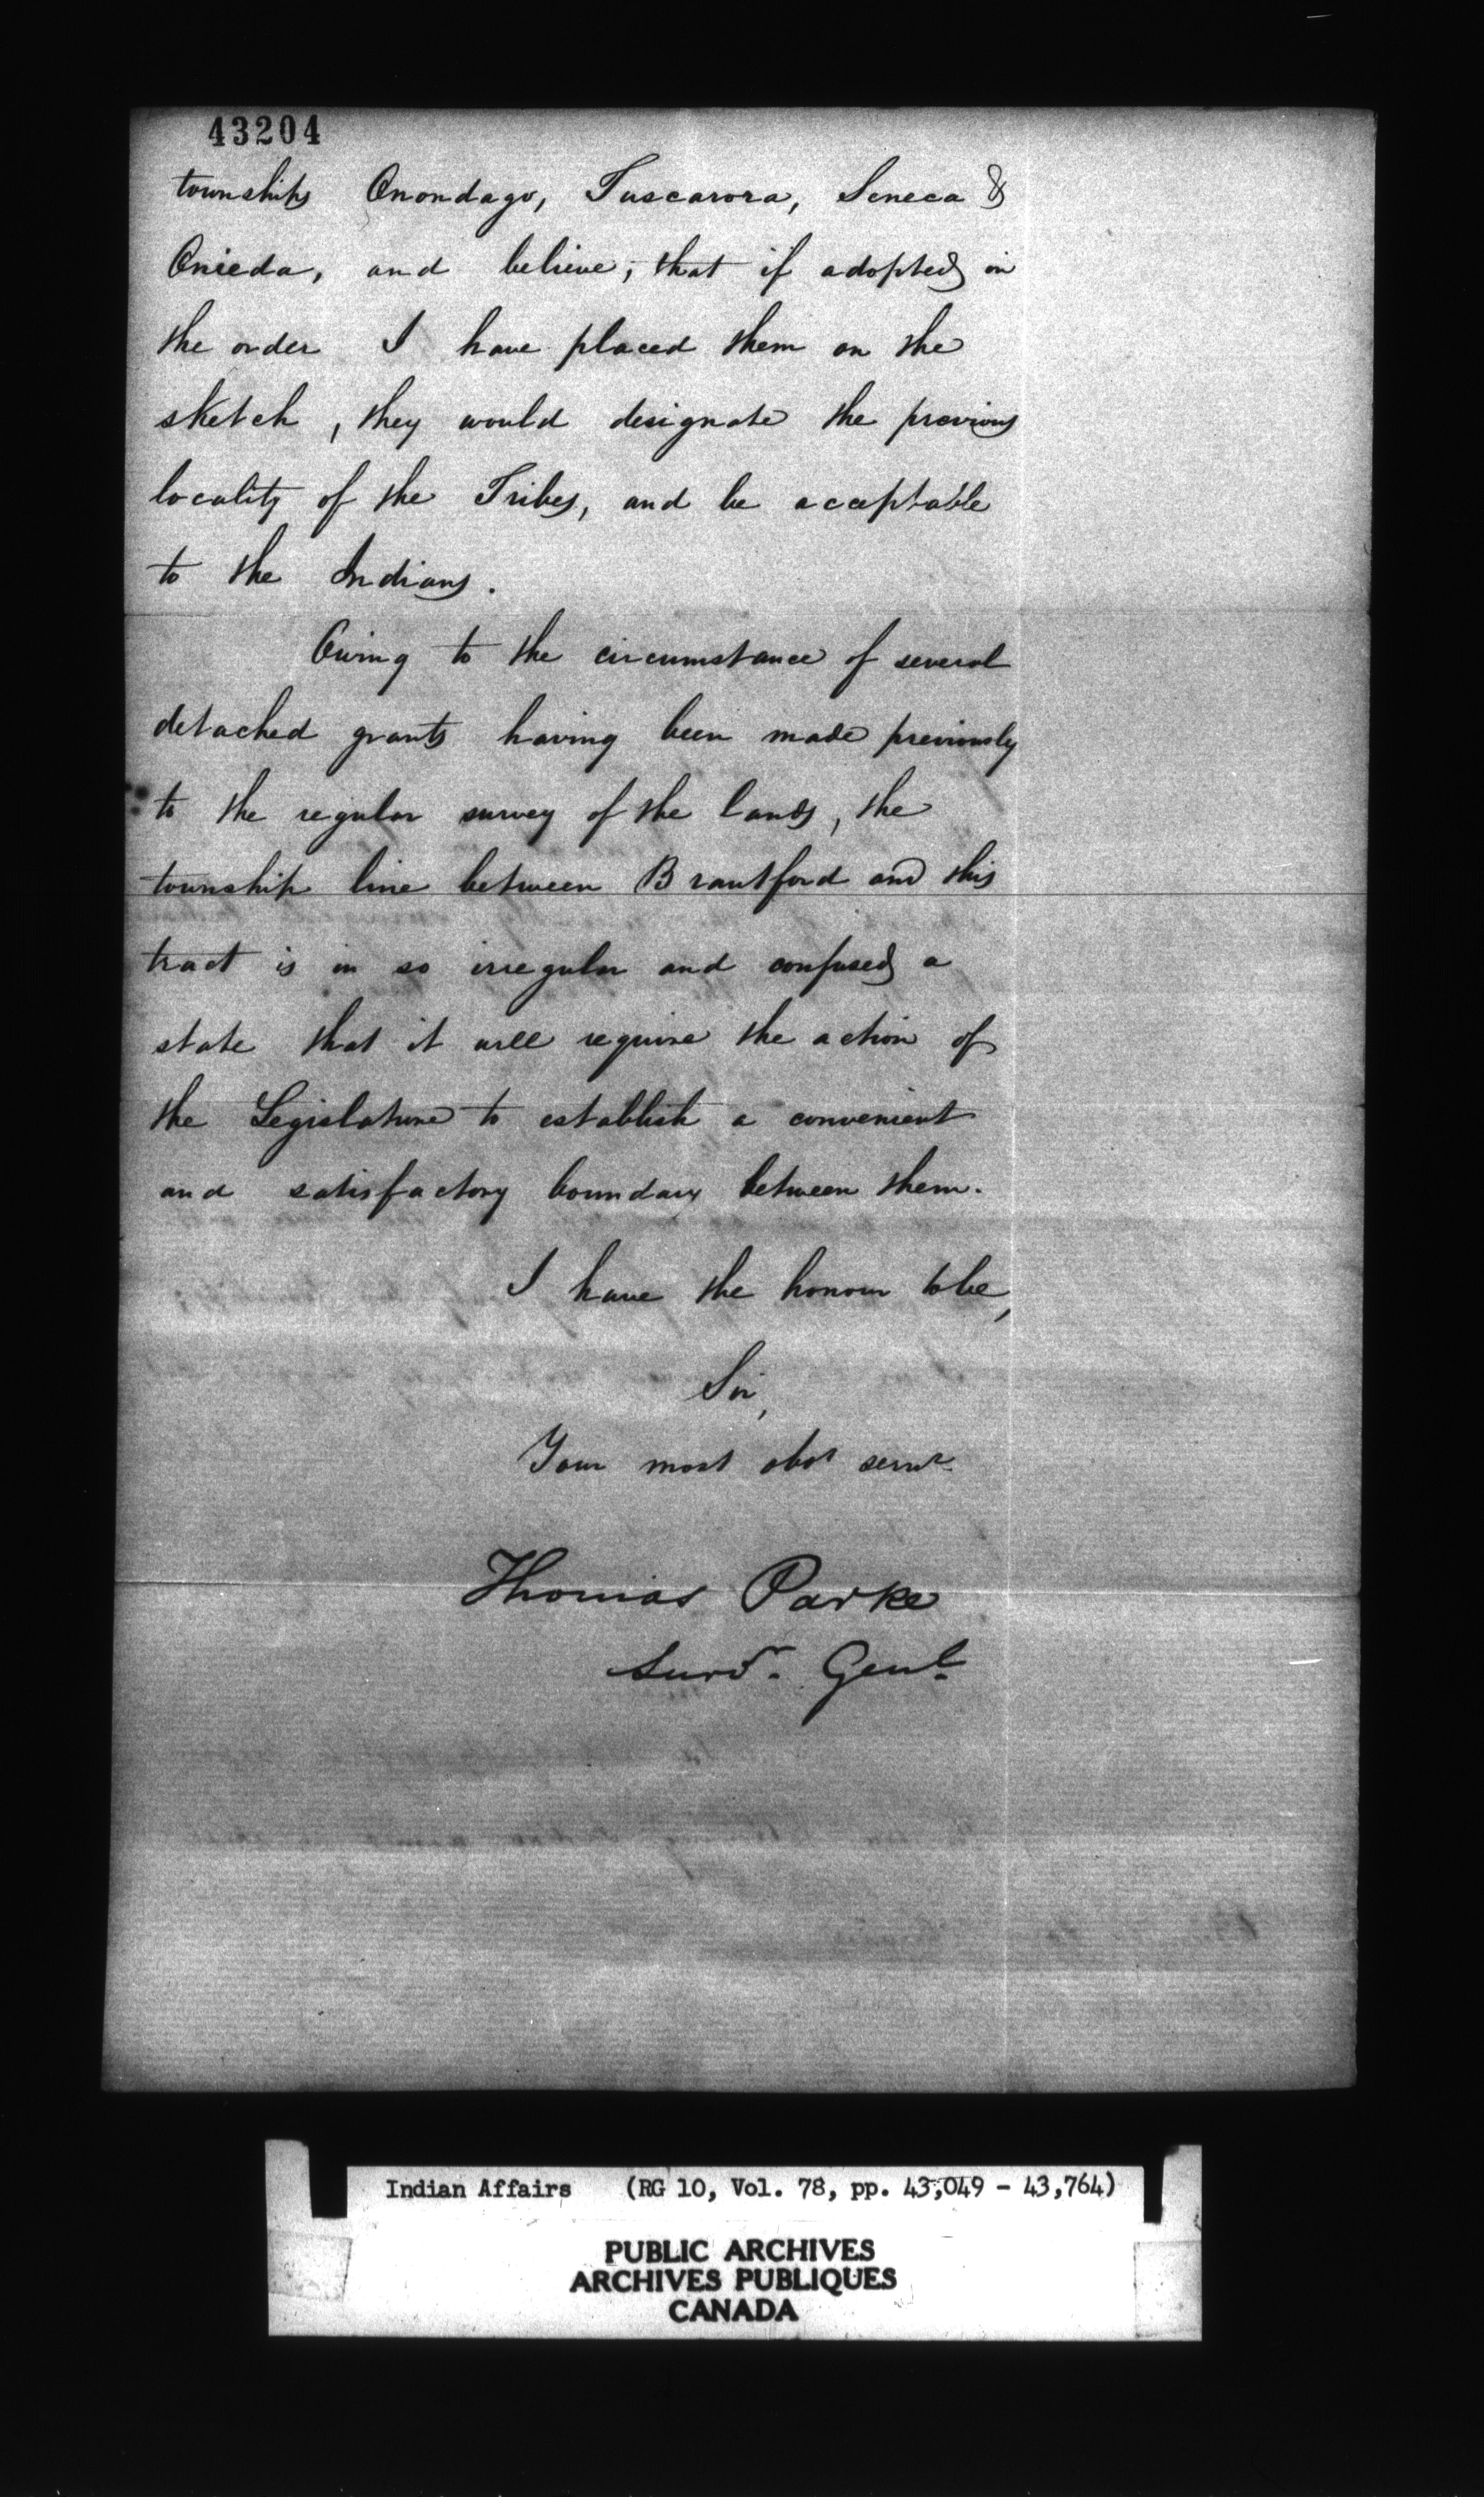 43204
townships Onondago, Tuscarora, Seneca &
Onieda, and believe, that if adopted in
the order I have placed them on the
sketch, they would designate the previous
locality of the Tribes, and be acceptable
to the Indians.
Owing to the circumstance of several
detached grants having been made previously
to the regular survey of the lands, the
township line between Brantford and this
tract is in so irregular and confused a
state that it will require the action of
the Legislature to establish a convenient
and satisfactory boundary between them.
I have the honour to be,
Sir,
Your most obdt servt
Thomas Parke
Survr. Genl.
Indian Affairs (RG 10, Vol. 78, pp. 43,049 - 43,764)
PUBLIC ARCHIVES
ARCHIVES PUBLIQUES
CANADA